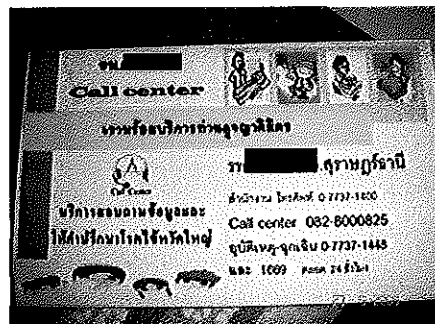 รพ.
Call center
เราพร้อมบริการท่านดุจญาติมิตร
Call Center
บริการสอบถามข้อมูลและ
ให้คำปรึกษาโรคไข้หวัดใหญ่
รพ. .สุราษฎร์ธานี
สำนักงาน โทรศัพท์ 0-7737-1400
Call center 082-8000825
อุบัติเหตุ-ฉุกเฉิน 0-7737-1445
และ 1669 ตลอด 24 ชั่วโมง